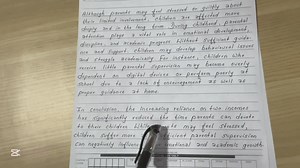 Although parents may feel stressed or guilty about
their limited involvement, children are affected more
deeply and in the long term. During childhood, parental
attention plays a vital role in emotional development,
discipline, and academic progress. Without sufficient guidance
and support, children may develop behavioural issues
and struggle academically. For instance, children who
receive little parental supervision may become overly
dependent on digital devices or perform poorly at
school due to a lack of encouragement as well as
proper guidance at home.
In conclusion, the increasing reliance on two incomes
has significantly reduced the time parents can devote
to their children. While may feel stressed,
children suffer more parental supervision
can negatively influence emotional and academic growth.